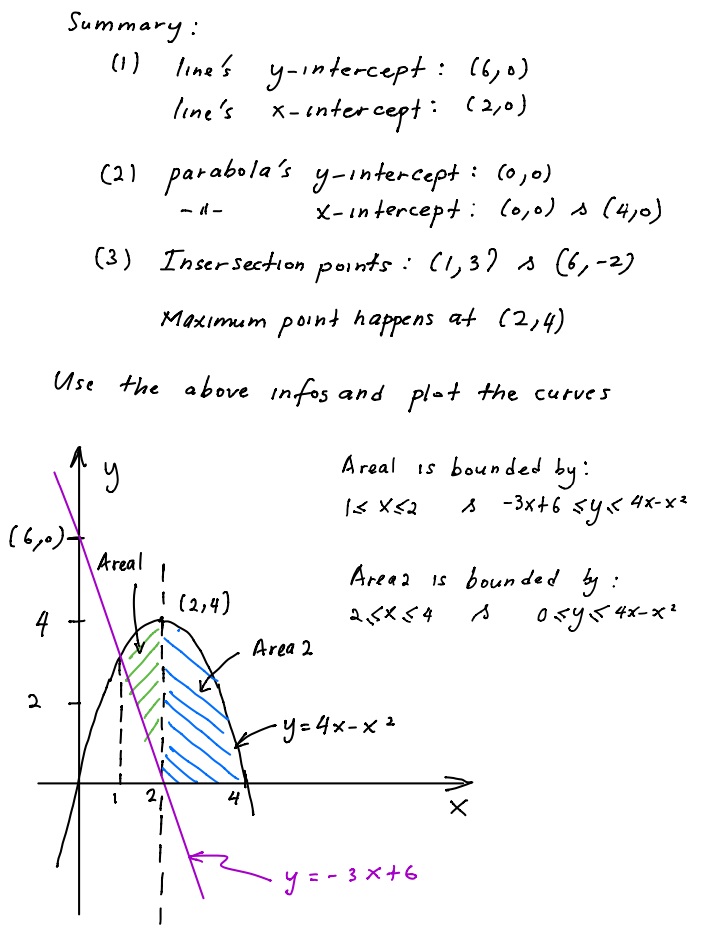 Summary:
(1) line's y-intercept: (6,0)
line's x-intercept: (2,0)
(2) parabola's y-intercept: (0,0)
-"- x-intercept: (0,0) & (4,0)
(3) Insersection points: (1,3) & (6,-2)
Maximum point happens at (2,4)
Use the above infos and plot the curves
y
Area1 is bounded by:
1≤ x≤2 & -3x+6 ≤y≤ 4x-x²
(6,0)
Area1
Area2 is bounded by:
2≤x≤4 & 0≤y≤4x-x²
(2,4)
4
Area 2
2
y=4x-x²
1 2 4
x
y=-3x+6